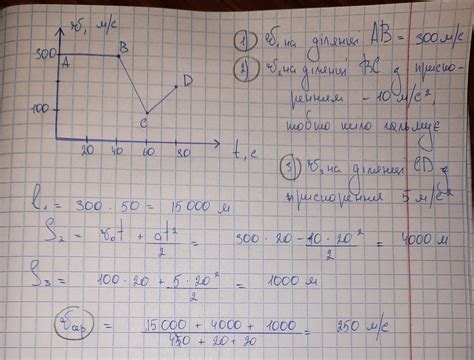 v, м/с
300
A
B
D
100
C
20 40 60 80 t, c
1) v, на ділянці AB = 300 м/с
2) v, на ділянці BC з приско-
ренням - 10 м/с²,
тобто тіло гальмує
3) v, на ділянці CD з
прискорення 5 м/с²
l₁ = 300 · 50 = 15000 м
S₂ = v₀t + at²/2 = 300 · 20 - 10 · 20²/2 = 4000 м
S₃ = 100 · 20 + 5 · 20²/2 = 1000 м
vсер = 15000 + 4000 + 1000 / 40 + 20 + 20 = 250 м/с